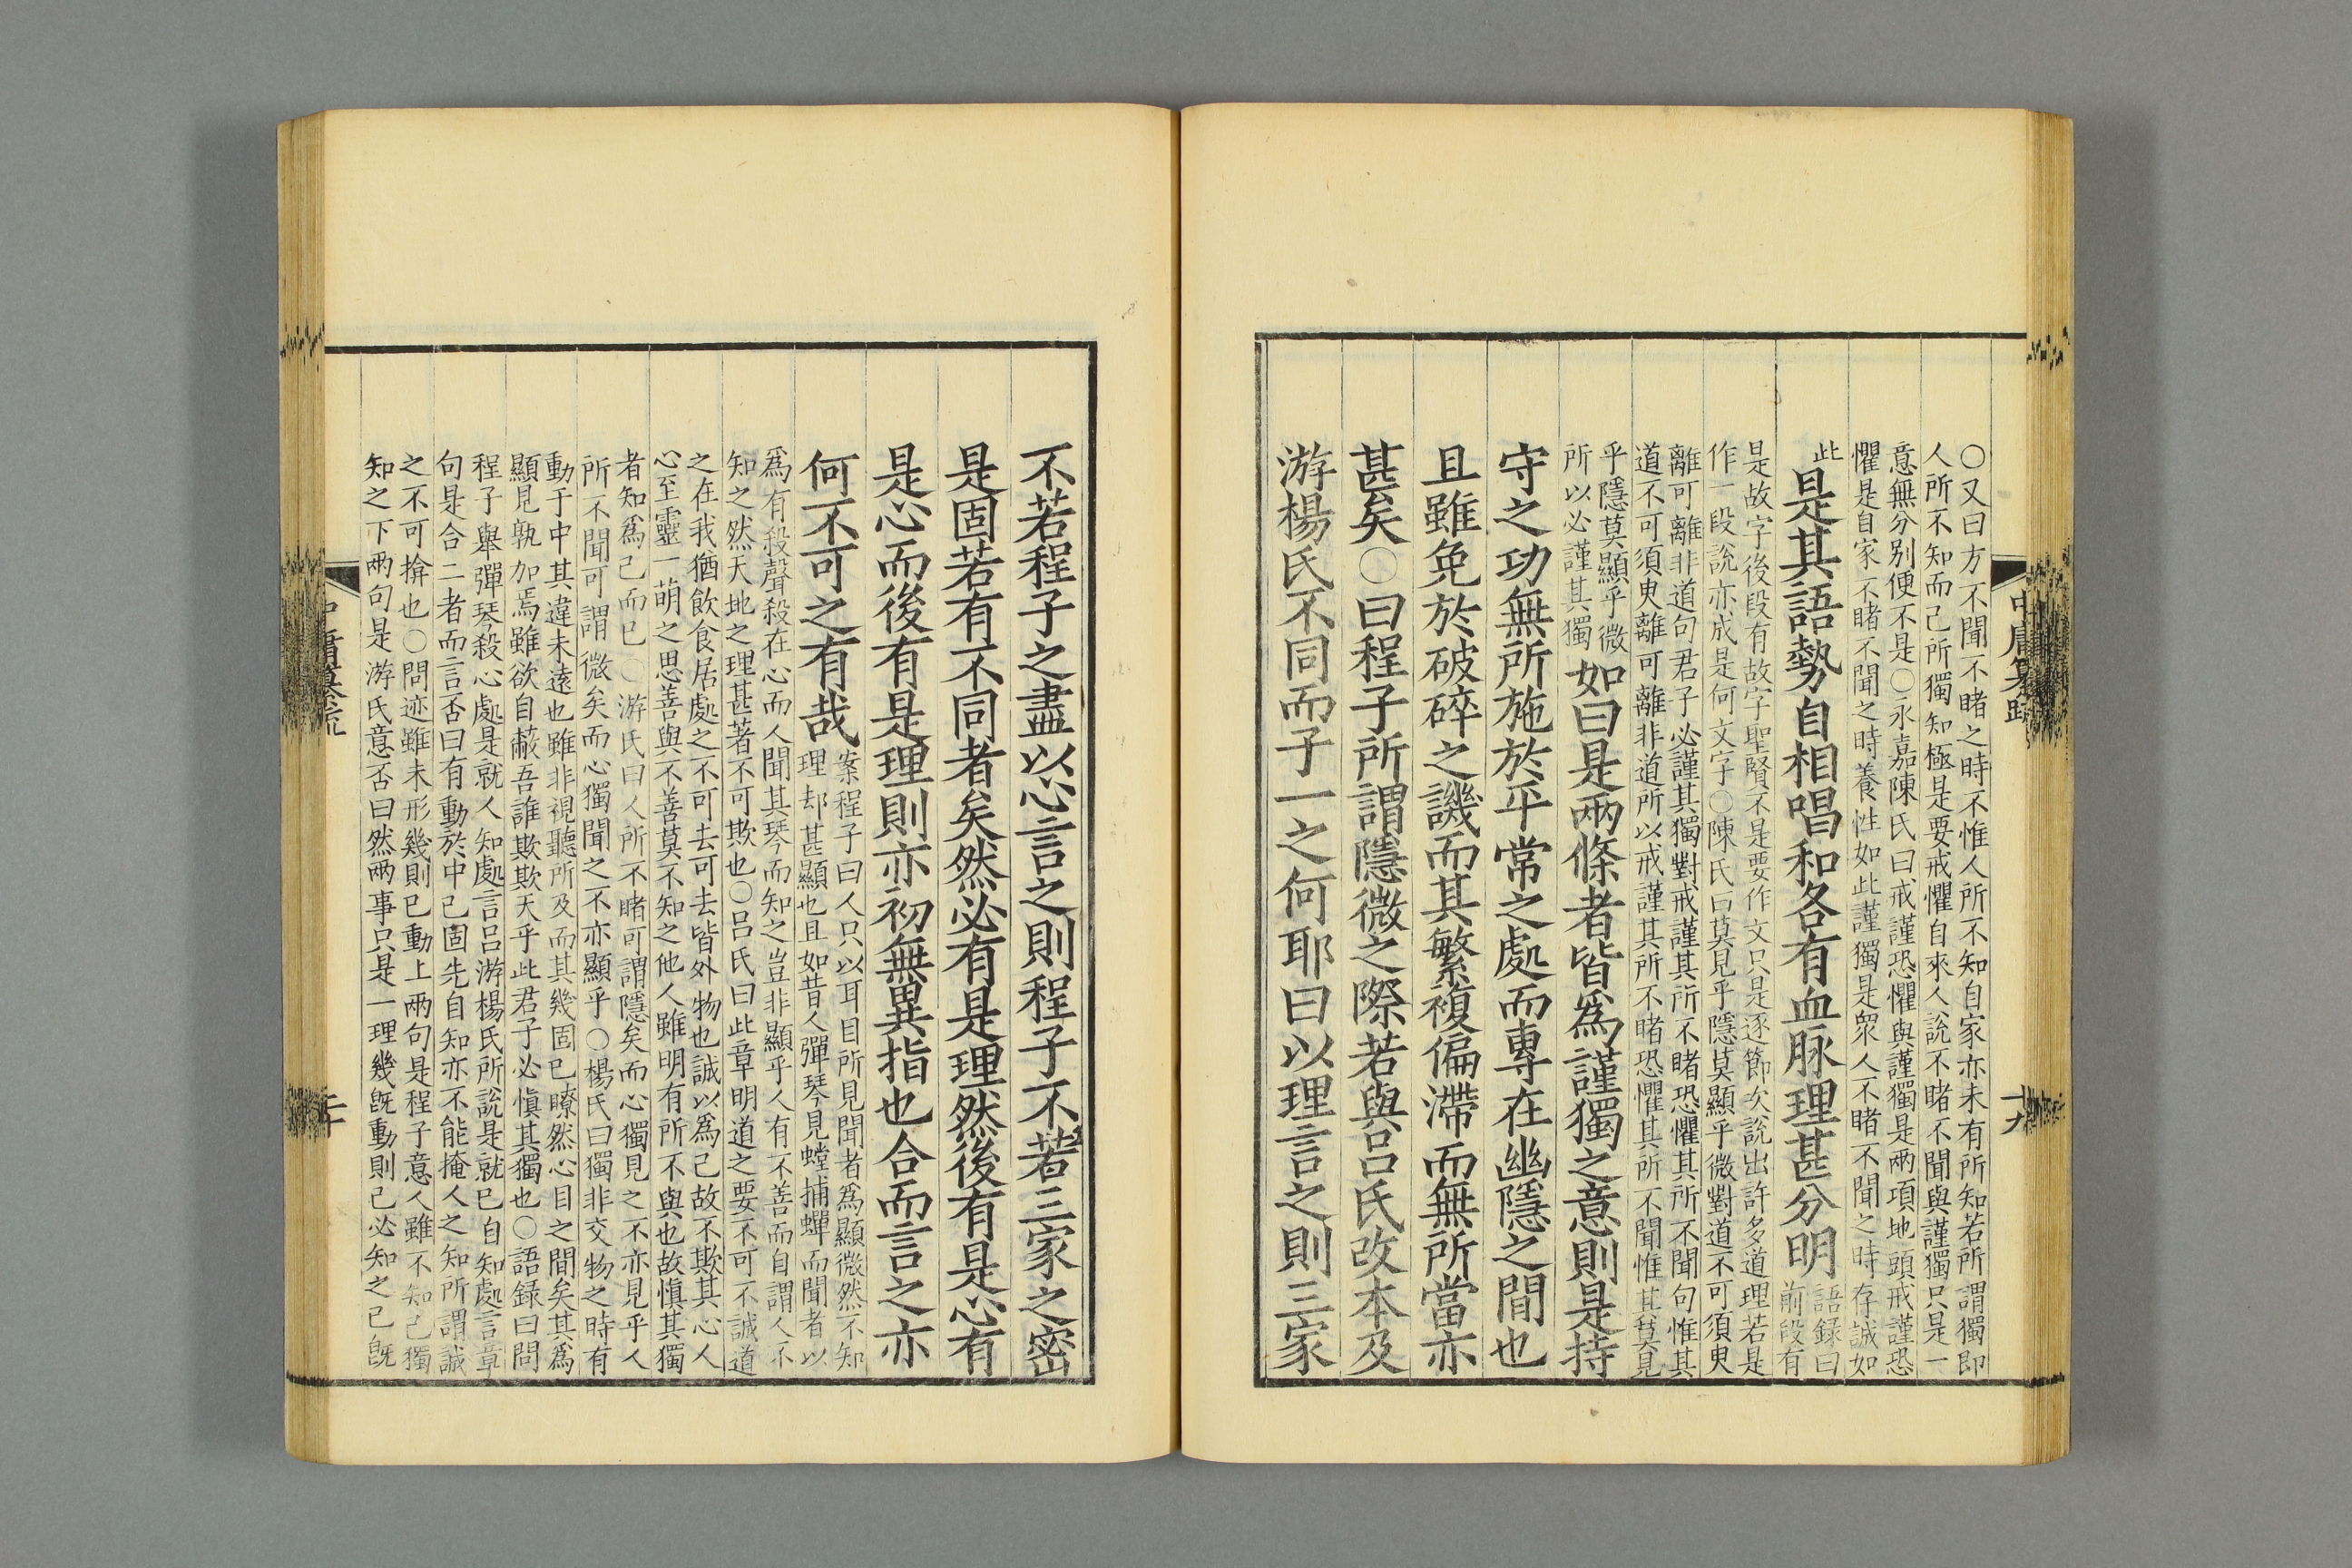 ○又曰方不聞不睹之時不惟人所不知自家亦未有所知若所謂獨即
人所不知而己所獨知極是要戒懼自來人說不睹不聞與謹獨只是一
意無分别便不是○永嘉陳氏曰戒謹恐懼與謹獨是兩項地頭戒謹恐
懼是自家不睹不聞之時養性如此謹獨是衆人不睹不聞之時存誠如
此
是其語勢自相唱和各有血脉理甚分明
語録曰
前段有
是故字後段有故字聖賢不是要作文只是逐節次說出許多道理若是
作一段說亦成是何文字○陳氏曰莫見乎隱莫顯乎微對道不可須臾
離可離非道句君子必謹其獨對戒謹其所不睹恐懼其所不聞句惟其
道不可須臾離可離非道所以戒謹其所不睹恐懼其所不聞惟其莫見
乎隱莫顯乎微
所以必謹其獨
如曰是兩條者皆爲謹獨之意則是持
守之功無所施於平常之處而專在幽隱之間也
且雖免於破碎之譏而其繁複偏滯而無所當亦
甚矣○曰程子所謂隱微之際若與呂氏改本及
游楊氏不同而子一之何耶曰以理言之則三家
中庸纂疏
十九
不若程子之盡以心言之則程子不若三家之密
是固若有不同者矣然必有是理然後有是心有
是心而後有是理則亦初無異指也合而言之亦
何不可之有哉
案程子曰人只以耳目所見聞者爲顯微然不知
理却甚顯也且如昔人彈琴見螳捕蟬而聞者以
爲有殺聲殺在心而人聞其琴而知之豈非顯乎人有不善而自謂人不
知之然天地之理甚著不可欺也○呂氏曰此章明道之要不可不誠道
之在我猶飲食居處之不可去可去皆外物也誠以爲己故不欺其心人
心至靈一萌之思善與不善莫不知之他人雖明有所不與也故慎其獨
者知爲己而已○游氏曰人所不睹可謂隱矣而心獨見之不亦見乎人
所不聞可謂微矣而心獨聞之不亦顯乎○楊氏曰獨非交物之時有
動于中其違未遠也雖非視聽所及而其幾固已瞭然心目之間矣其爲
顯見孰加焉雖欲自蔽吾誰欺欺天乎此君子必慎其獨也○語録曰問
程子舉彈琴殺心處是就人知處言呂游楊氏所說是就已自知處言章
句是合二者而言否曰有動於中已固先自知亦不能掩人之知所謂誠
之不可揜也○問迹雖未形幾則已動上兩句是程子意人雖不知己獨
知之下兩句是游氏意否曰然兩事只是一理幾旣動則己必知之己旣
中庸纂疏
二十